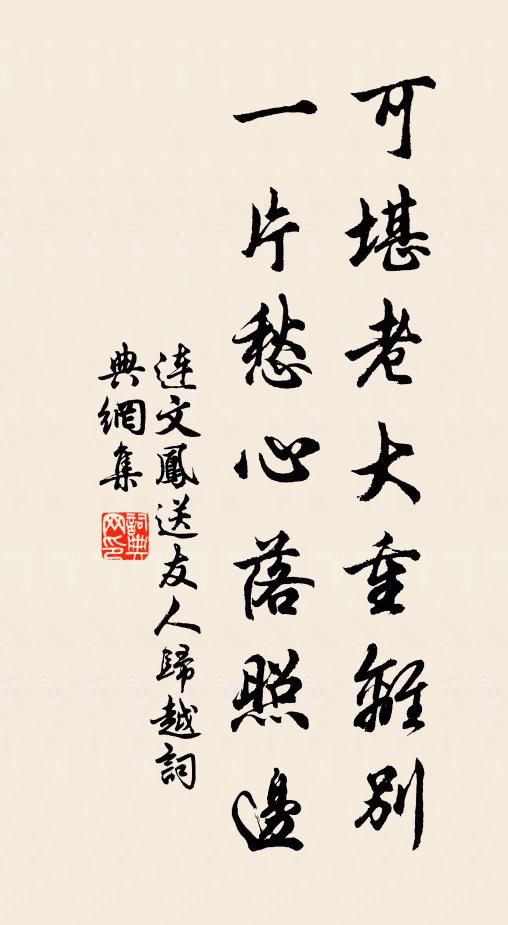 可堪老大重離別
一片愁心落照邊
連文鳳送友人歸越詞
典網集
詞典網印